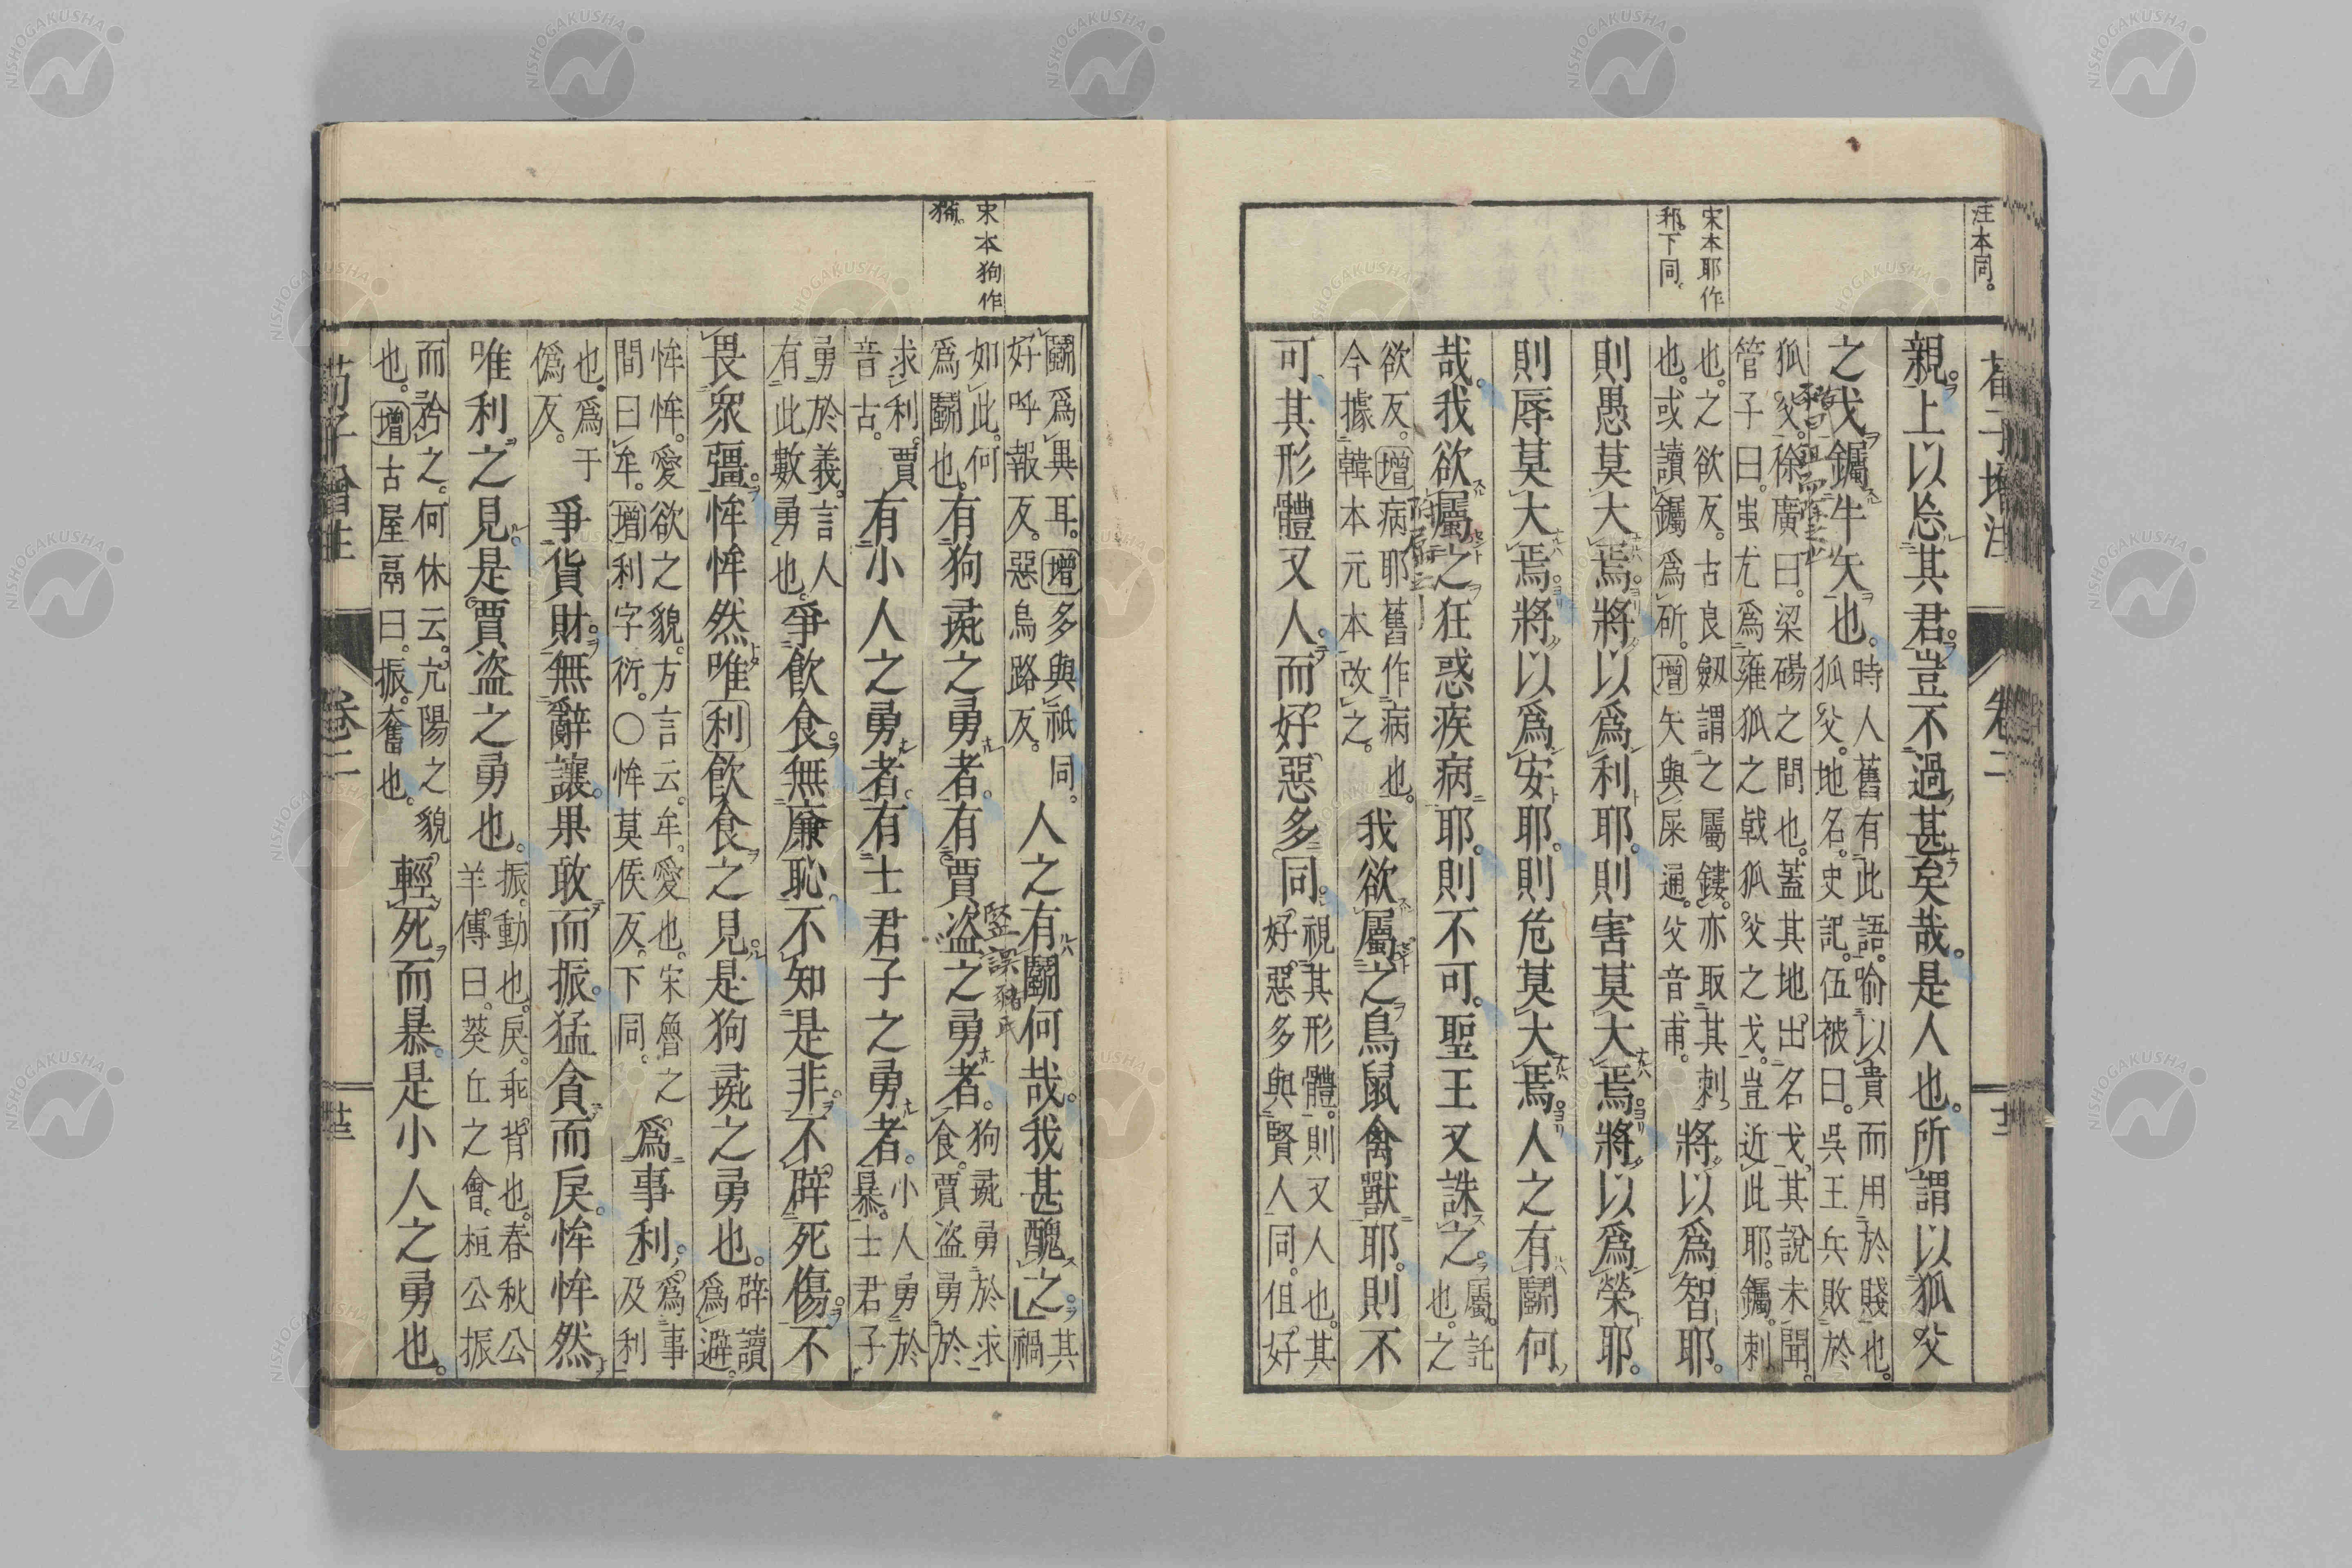 注本同。
宋本耶作
邪。下同。
荀子增注
卷二
親。上以忘其君。豈不過甚矣哉。是人也。所謂以狐父
之戈钃牛矢也。時人舊有此語。喻以貴而用於賤也。
狐父。地名。史記。伍被曰。吳王兵敗於
狐父。徐廣曰。梁碭之間也。蓋其地出名戈。其說未聞。
管子曰。蚩尤爲雍狐之戟狐父之戈。豈近此耶。钃。刺
也。之欲反。古良劔謂之屬鏤。亦取其刺
也。或讀钃爲斫。增矢與屎通。父音甫。將以爲智耶。
則愚莫大焉。將以爲利耶。則害莫大焉。將以爲榮耶。
則辱莫大焉。將以爲安耶。則危莫大焉。人之有鬭何
哉。我欲屬之狂惑疾病耶。則不可。聖王又誅之。屬。託
也。之
欲反。增病耶舊作病也。
今據韓本元本改之。我欲屬之鳥鼠禽獸耶。則不
可其形體又人。而好惡多同。視其形體。則又人也。其
好惡多與賢人同。但好
宋本狗作
猗。
鬭爲異耳。增多與祇同。
好呼報反。惡烏路反。人之有鬭何哉。我甚醜之。其禍
如此。何
爲鬭也。有狗彘之勇者。有賈盜之勇者。狗彘勇於求
食。賈盜勇於
求利。賈
音古。有小人之勇者。有士君子之勇者。小人勇於
暴。士君子
勇於義。言人
有此數勇也。爭飲食。無廉恥。不知是非。不辟死傷。不
畏衆彊。恈恈然唯利飲食之見。是狗彘之勇也。辟讀
爲避。
恈恈。愛欲之貌。方言云。牟。愛也。宋魯之
間曰牟。增利字衍。〇恈莫侯反。下同。爲事利。爲事
及利
也。爲于
僞反。爭貨財。無辭讓。果敢而振。猛貪而戾。恈恈然
唯利之見。是賈盜之勇也。振。動也。戾。乖背也。春秋公
羊傳曰。葵丘之會。桓公振
而矜之。何休云。亢陽之貌
也。增古屋鬲曰。振。奮也。輕死而暴。是小人之勇也。
荀子增注
卷二